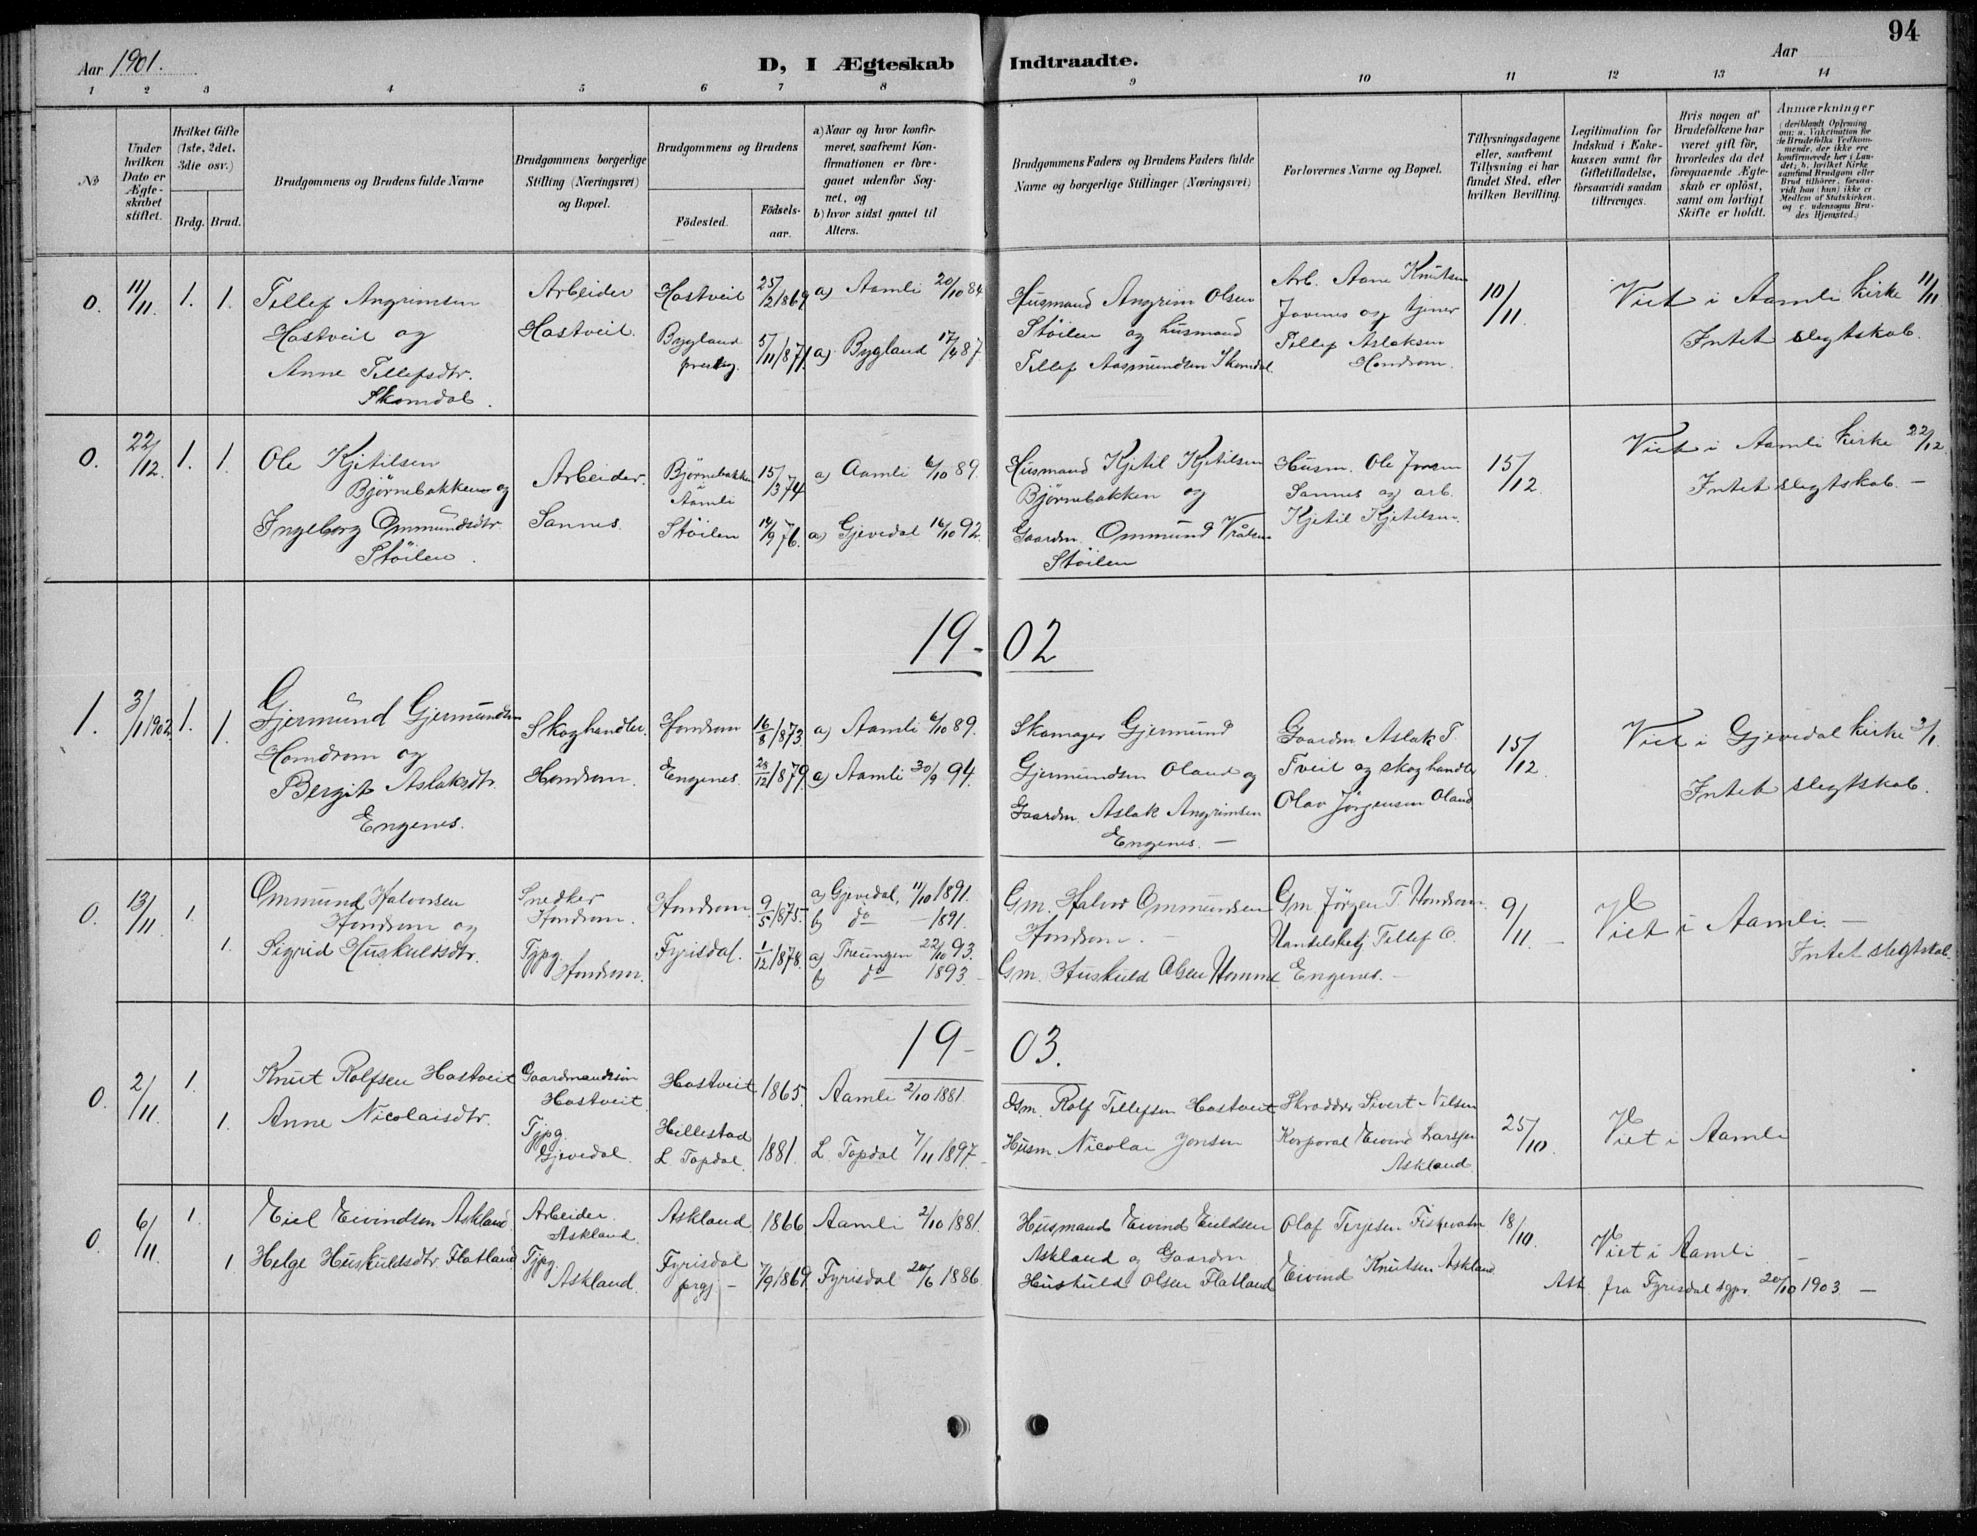 94
Aar 1901.
D, I Ægteskab Indtraadte.
Aar
1 2 3 4 5 6 7 8 9 10 11 12 13 14
No
Under hvilken Dato er Ægteskabet stiftet.
Hvilket Gifte (1ste, 2det, 3die osv.)
Brdg. Brud.
Brudgommens og Brudens fulde Navne
Brudgommens borgerlige Stilling (Næringsvei) og Bopæl.
Brudgommens og Brudens
Fødested. Fødselsaar.
a) Naar og hvor konfirmeret, saafremt Konfirmationen er foregaaet udenfor Sognet, og
b) hvor sidst gaaet til Alters.
Brudgommens Faders og Brudens Faders fulde Navne og borgerlige Stillinger (Næringsvei)
Forlovernes Navne og Bopæl.
Tillysningsdagene eller, saafremt Tillysning ei har fundet Sted, efter hvilken Bevilling.
Legitimation for Indskud i Enkekassen samt for Giftetilladelse, forsaavidt saadan tiltrænges.
Hvis nogen af Brudefolkene har været gift før, hvorledes da det foregaaende Ægteskab er opløst, samt om lovligt Skifte er holdt.
Anmærkninger
0. 11/11. 1. 1.
Tellef Angrimsen
Hastveit og
Anne Tellefsdtr.
Skomdal.
Arbeider
Hastveit.
Hastveit 25/2 1869
Bygland presteg. 5/11 1871.
a) Aamli 20/10 84
a) Bygland 17/4 87
Husmand Angrim Olsen
Støilen og husmand
Tellef Aasmundsen Skomdal.
Arb. Aane Knutsen
Jovenes og tjener
Tellef Aslaksen
Hondrom.
10/11
Viet i Aamli kirke 11/11
Intet slegtskab.
0. 22/12. 1. 1.
Ole Kjetilsen
Bjørnebakken og
Ingeborg Ommundsdtr.
Støilen.
Arbeider.
Sannes.
Bjørnebakken i Aamli 15/3 74
Støilen 14/9 76.
a) Aamli 6/10 89.
a) Gjevedal 16/10 92.
Husmand Kjetil Kjetilsen
Bjørnebakken og
Gaardm. Ommund Vråls
Støilen
Husm. Ole
Sannes og arb.
Kjetil Kjetilsen.
15/12.
Viet i Aamli kirke 22/12.
Intet slegtskab. —
19-02
1. 3/1 1902. 1. 1.
Gjermund Gjermundsen
Hondrom og
Bergit Aslaksdtr.
Engenes.
Skoghandler.
Hondrom.
Hondrom 16/8 1873
Engenes 28/12 1879.
a) Aamli 6/10 89.
a) Aamli 30/9 94.
Skomager Gjermund
Gjermundsen Oland og
Gaardm. Aslak Angrimsen
Engenes. —
Gaardm Aslak T.
Tveit og skoghandler
Olav Jørgensen Oland
15/12.
Viet i Gjevedal kirke 3/1.
Intet slegtskab.
0. 13/11 1. 1.
Ommund Halvorsen
Hondrom og
Sigrid Huskuldsdtr.
Snedker
Hondrom.
Tjpg.
Hondrom.
Hondrom 9/5 1875.
Fyrisdal. 1/12 1878.
a) Gjevedal, 11/10 1891.
b) do — 1891.
a) Treungen 22/10 93.
b) do 1893.
Gm. Halvor Ommundsen
Hondrom. —
Gm. Huskuld Olsen Homme
Gm. Jörgen T. Hondrom.
Handelsbetj Tellef O.
Engenes. —
9/11.
Viet i Aamli. —
Intet slegtskab.
19-03.
0. 2/11 1. 1.
Knut Rolfsen Hastveit
Anne Nicolaisdtr.
Gaardmandssön
Hastveit
Tjpg.
Gjevedal.
Hastveit 1865
Hillestad
L. Topdal. 1881.
Aamli 2/10 1881.
L. Topdal 7/11 1897. —
Gsm. Rolf Tellefsen Hastveit
Husm. Nicolai Jonsen
Skrædder Sivert Nilsen
Korporal Eivind Larssen
Askland.
25/10.
Viet i Aamli
0. 6/11 1. 1
Eivindsen Askland
Helge Huskuldsdtr Flatland
Arbeider.
Askland.
Tjpg.
Askland.
Askland. 1866
Fyrisdal prgj — 7/9 1869.
Aamli 2/10 1881.
Fyrisdal 20/6 1886.
Husmand Eivind
Askland og Gaardm
Huskuld Olsen Flatland
Olaf Terjesen Fiskvatn
Eivind Knutsen Askland
18/10.
Viet i Aamli —
Att. fra Fyrisdal sgpr. 20/10 1903. —